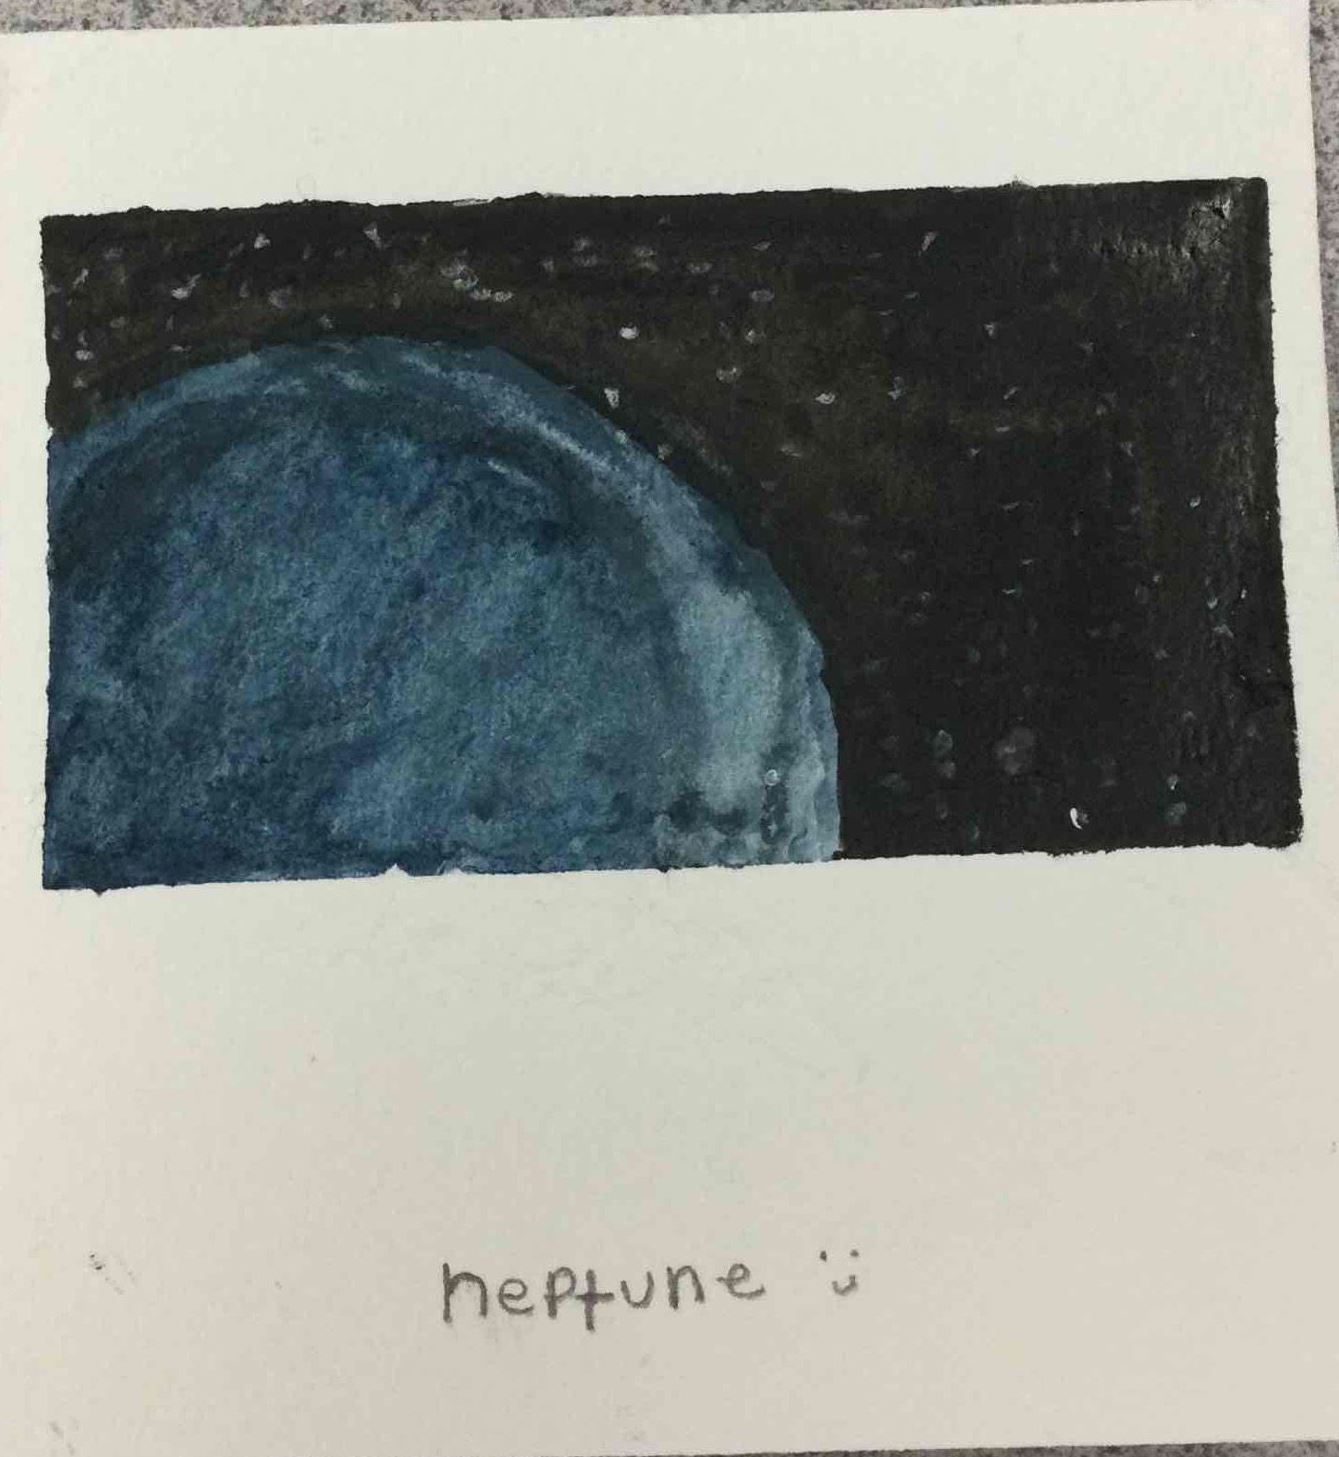 neptune :)